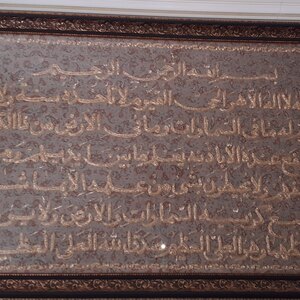 بسم الله الرحمن الرحيم
لا اله الا هو الحي القيوم لا تأخذه سنة ولا
له ما في السماوات وما في الارض من ذا
عنده الا باذنه يعلم ما بين ايديهم
ولا يحيطون بشئ من علمه الا بما
كرسيه السماوات والارض ولا
وهو العلي العظيم صدق الله العلي العظيم